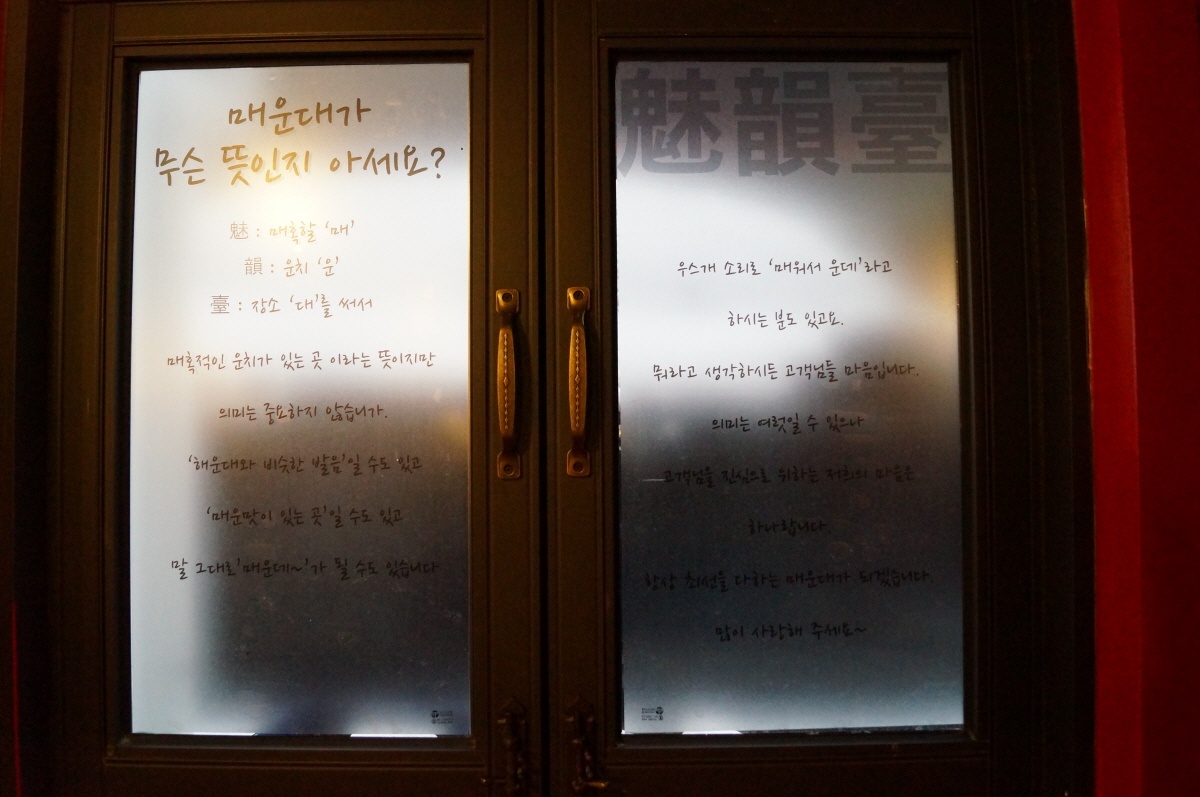 매운대가
무슨 뜻인지 아세요?
魅 : 매혹할 '매'
韻 : 운치 '운'
臺 : 장소 '대'를 써서
매혹적인 운치가 있는 곳 이라는 뜻이지만
의미는 중요하지 않습니다.
'해운대와 비슷한 발음'일 수도 있고
'매운맛이 있는 곳'일 수도 있고
말 그대로'매운데~'가 될 수도 있습니다
魅韻臺
우스개 소리로 '매워서 운데'라고
하시는 분도 있고요.
뭐라고 생각하시든 고객님들 마음입니다.
의미는 여럿일 수 있으나
고객님을 진심으로 위하는 저희의 마음은
하나랍니다
항상 최선을 다하는 매운대가 되겠습니다.
많이 사랑해 주세요~